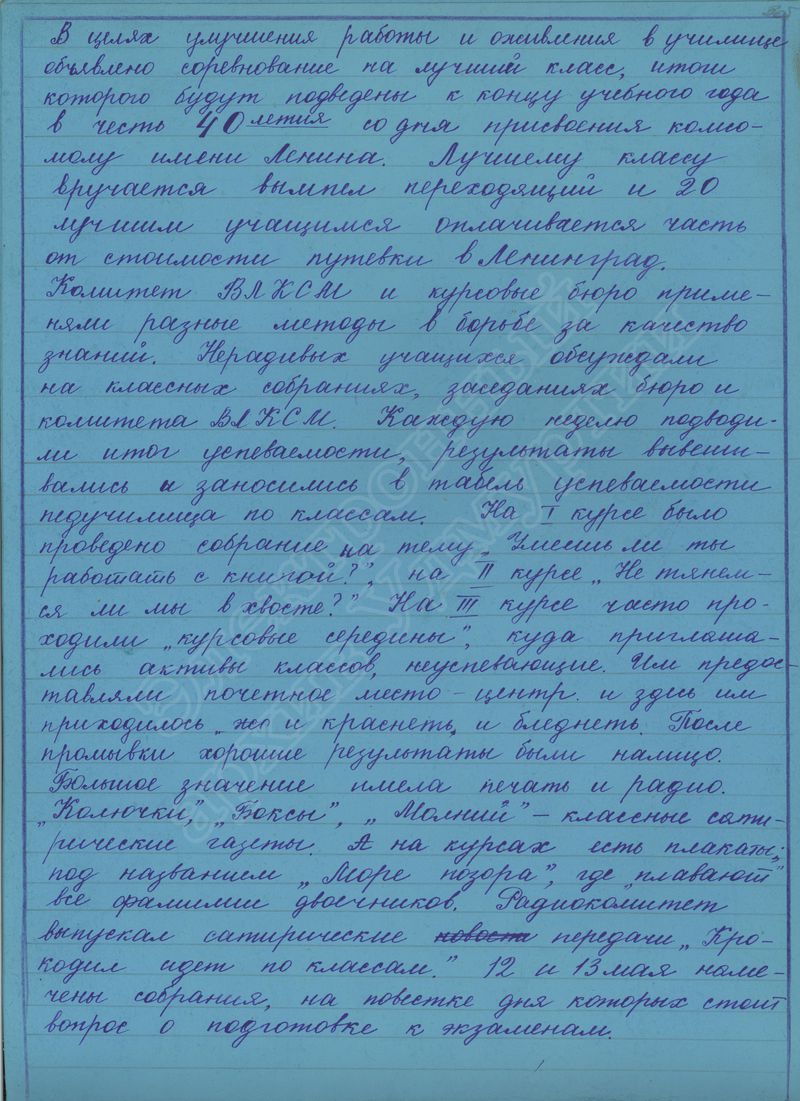 В целях улучшения работы и оживления в училище
объявлено соревнование на лучший класс, итоги
которого будут подведены к концу учебного года
в честь 40 летия со дня присвоения комсо-
молу имени Ленина. Лучшему классу
вручается вымпел переходящий и 20
лучшим учащимся оплачивается часть
от стоимости путевки в Ленинград.
Комитет ВЛКСМ и курсовые бюро приме-
няли разные методы в борьбе за качество
знаний. Нерадивых учащихся обсуждали
на классных собраниях, заседаниях бюро и
комитета ВЛКСМ. Каждую неделю подводи-
ли итог успеваемости, результаты вывеши-
вались и заносились в табель успеваемости
педучилища по классам. На I курсе было
проведено собрание на тему „Умеешь ли ты
работать с книгой?", на II курсе „Не тянем-
ся ли мы в хвосте?" На III курсе часто про-
ходили „курсовые середины", куда приглаша-
лись активы классов, неуспевающие. Им предос-
тавляли почетное место - центр. и здесь им
приходилось „же и краснеть, и бледнеть. После
промывки хорошие результаты были налицо.
Большое значение имела печать и радио.
„Колючки", „Боксы", „Молний" - классные сати-
рические газеты. А на курсах есть плакаты,
под названием „Море позора", где „плавают"
все фамилии двоечников. Радиокомитет
выпускал сатирические новости передачи „Кро-
кодил идет по классам." 12 и 13 мая наме-
чены собрания, на повестке дня которых стоит
вопрос о подготовке к экзаменам.